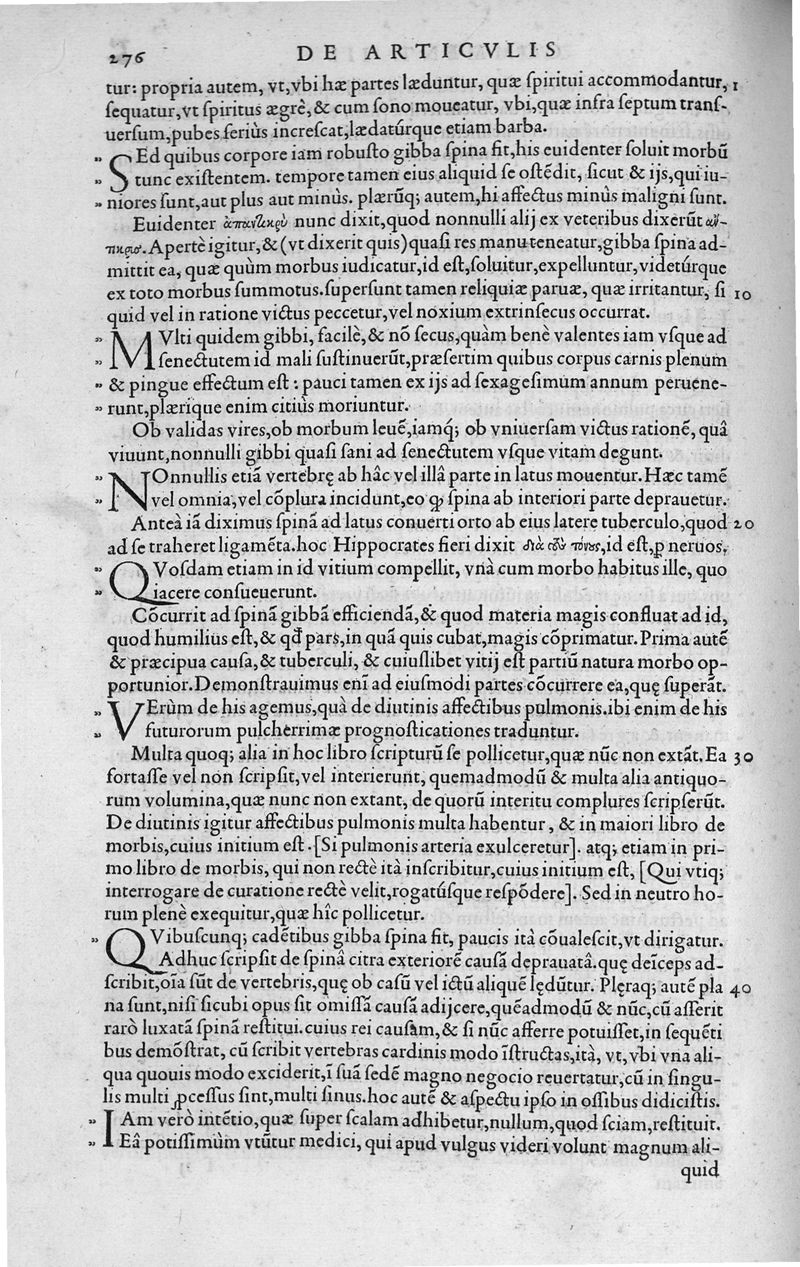 276 DE ARTICVLIS
tur: propria autem, vt, vbi hæ partes læduntur, quæ ſpiritui accommodantur, 1
ſequatur, vt ſpiritus ægrè, & cum ſono moueatur, vbi, quæ infra ſeptum tranſ-
uerſum, pubes ſeriùs increſcat, lædatúrque etiam barba.
„ SEd quibus corpore iam robuſto gibba ſpina fit, his euidenter ſoluit morbū
„ tunc exiſtentem. tempore tamen eius aliquid ſe oſtēdit, ſicut & ijs, qui iu-
„ niores ſunt, aut plus aut minùs. plærūq; autem, hi affectus minùs maligni ſunt.
Euidenter ἀπαντικρὺ nunc dixit, quod nonnulli alij ex veteribus dixerūt ἄν-
τικρυς. Apertè igitur, & (vt dixerit quis) quaſi res manu teneatur, gibba ſpina ad-
mittit ea, quæ quùm morbus iudicatur, id eſt, ſoluitur, expelluntur, videtúrque
ex toto morbus ſummotus. ſuperſunt tamen reliquiæ paruæ, quæ irritantur, ſi 10
quid vel in ratione victus peccetur, vel noxium extrinſecus occurrat.
„ MVlti quidem gibbi, facilè, & nō ſecus, quàm benè valentes iam vſque ad
„ ſenectutem id mali ſuſtinuerūt, præſertim quibus corpus carnis plenum
„ & pingue effectum eſt: pauci tamen ex ijs ad ſexageſimum annum peruene-
„ runt, plærique enim citiùs moriuntur.
Ob validas vires, ob morbum leuē, iamq; ob vniuerſam victus rationē, quâ
viuunt, nonnulli gibbi quaſi ſani ad ſenectutem vſque vitam degunt.
„ NOnnullis etiā vertebrę ab hâc vel illâ parte in latus mouentur. Hæc tamē
„ vel omnia, vel cōplura incidunt, eo ꝙ ſpina ab interiori parte deprauetur.
Anteà iā diximus ſpinā ad latus conuerti orto ab eius latere tuberculo, quod 20
ad ſe traheret ligamēta. hoc Hippocrates fieri dixit διὰ τοὺς τόνους, id eſt, ꝑ neruos.
„ QVoſdam etiam in id vitium compellit, vnà cum morbo habitus ille, quo
„ iacere conſueuerunt.
Cōcurrit ad ſpinā gibbā efficiendā, & quod materia magis confluat ad id,
quod humilius eſt, & qđ pars, in quâ quis cubat, magis cōprimatur. Prima autē
& præcipua cauſa, & tuberculi, & cuiuſlibet vitij eſt partiū natura morbo op-
portunior. Demonſtrauimus enī ad eiuſmodi partes cōcurrere ea, quę ſuperāt.
„ VErùm de his agemus, quà de diutinis affectibus pulmonis. ibi enim de his
„ futurorum pulcherrimæ prognoſticationes traduntur.
Multa quoq; alia in hoc libro ſcripturū ſe pollicetur, quæ nūc non extāt. Ea 30
fortaſſe vel non ſcripſit, vel interierunt, quemadmodū & multa alia antiquo-
rum volumina, quæ nunc non extant, de quorū interitu complures ſcripſerūt.
De diutinis igitur affectibus pulmonis multa habentur, & in maiori libro de
morbis, cuius initium eſt. [Si pulmonis arteria exulceretur]. atq; etiam in pri-
mo libro de morbis, qui non rectè ità inſcribitur, cuius initium eſt, [Qui vtiq;
interrogare de curatione rectè velit, rogatúſque reſpōdere]. Sed in neutro ho-
rum plenè exequitur, quæ hîc pollicetur.
„ QVibuſcunq; cadētibus gibba ſpina fit, paucis ità cōualeſcit, vt dirigatur.
Adhuc ſcripſit de ſpinâ citra exteriorē cauſā deprauatâ. quę deīceps ad-
ſcribit, oīa ſūt de vertebris, quę ob caſū vel ictū aliquē lędūtur. Plęraq; autē pla 40
na ſunt, niſi ſicubi opus ſit omiſſā cauſā adijcere, quēadmodū & nūc, cū aſſerit
rarò luxatā ſpinā reſtitui. cuius rei cauſam, & ſi nūc afferre potuiſſet, in ſequēti
bus demōſtrat, cū ſcribit vertebras cardinis modo īſtructas, ità, vt, vbi vna ali-
qua quouis modo exciderit, ī ſuā ſedē magno negocio reuertatur, cū in ſingu-
lis multi ꝓceſſus ſint, multi ſinus. hoc autē & aſpectu ipſo in oſſibus didiciſtis.
„ IAm verò intētio, quæ ſuper ſcalam adhibetur, nullum, quod ſciam, reſtituit.
„ Eâ potiſſimùm vtūtur medici, qui apud vulgus videri volunt magnum ali-
quid